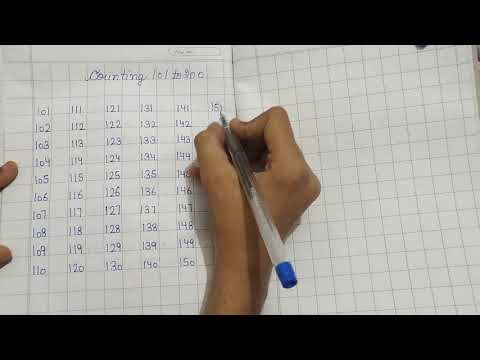 Counting 101 to 200
101 111 121 131 141 151
102 112 122 132 142
103 113 123 133 143
104 114 124 134 144
105 115 125 135 145
106 116 126 136 146
107 117 127 137 147
108 118 128 138 148
109 119 129 139 149
110 120 130 140 150